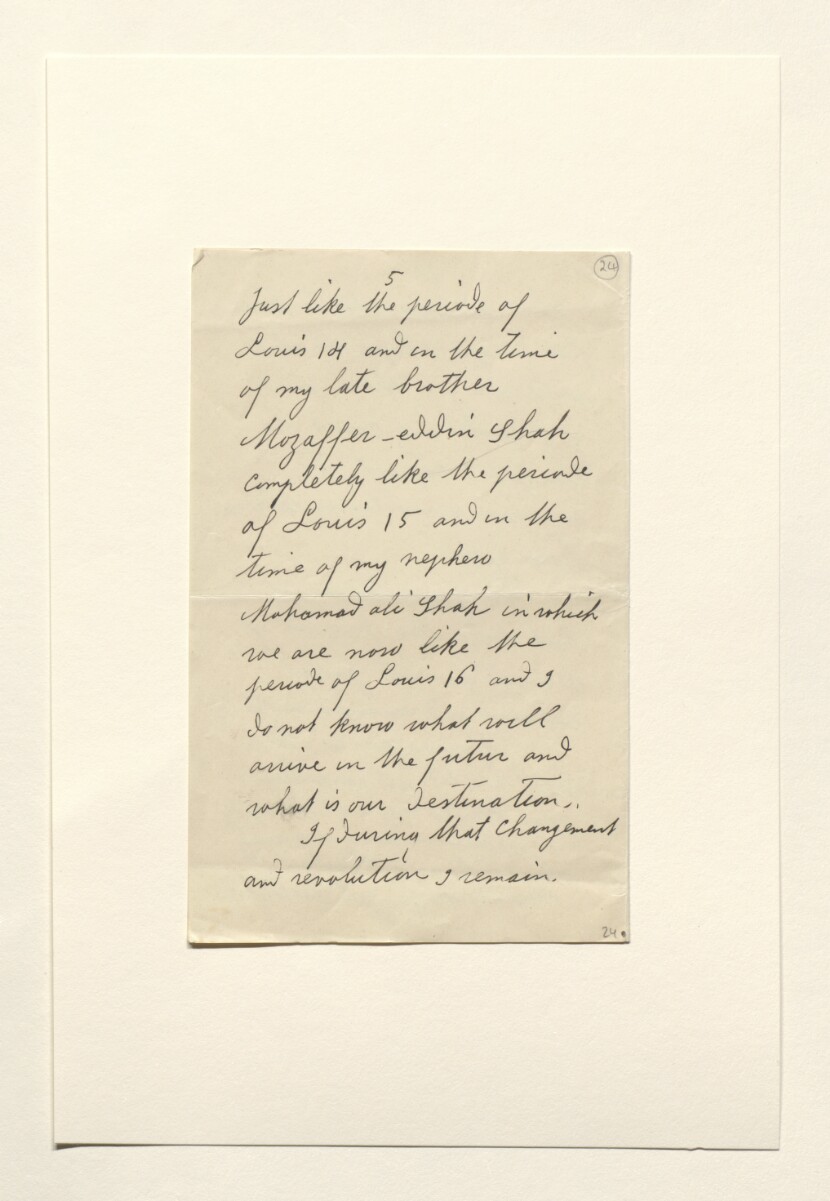 24
5
Just like the periode of
Louis 14 and in the time
of my late brother
Mozaffer-eddin Shah
completely like the periode
of Louis 15 and in the
time of my nephew
Mohamad ali Shah in which
we are now like the
periode of Louis 16 and I
do not know what will
arrive in the futur and
what is our destination..
If during that changement
and revolution I remain.
24